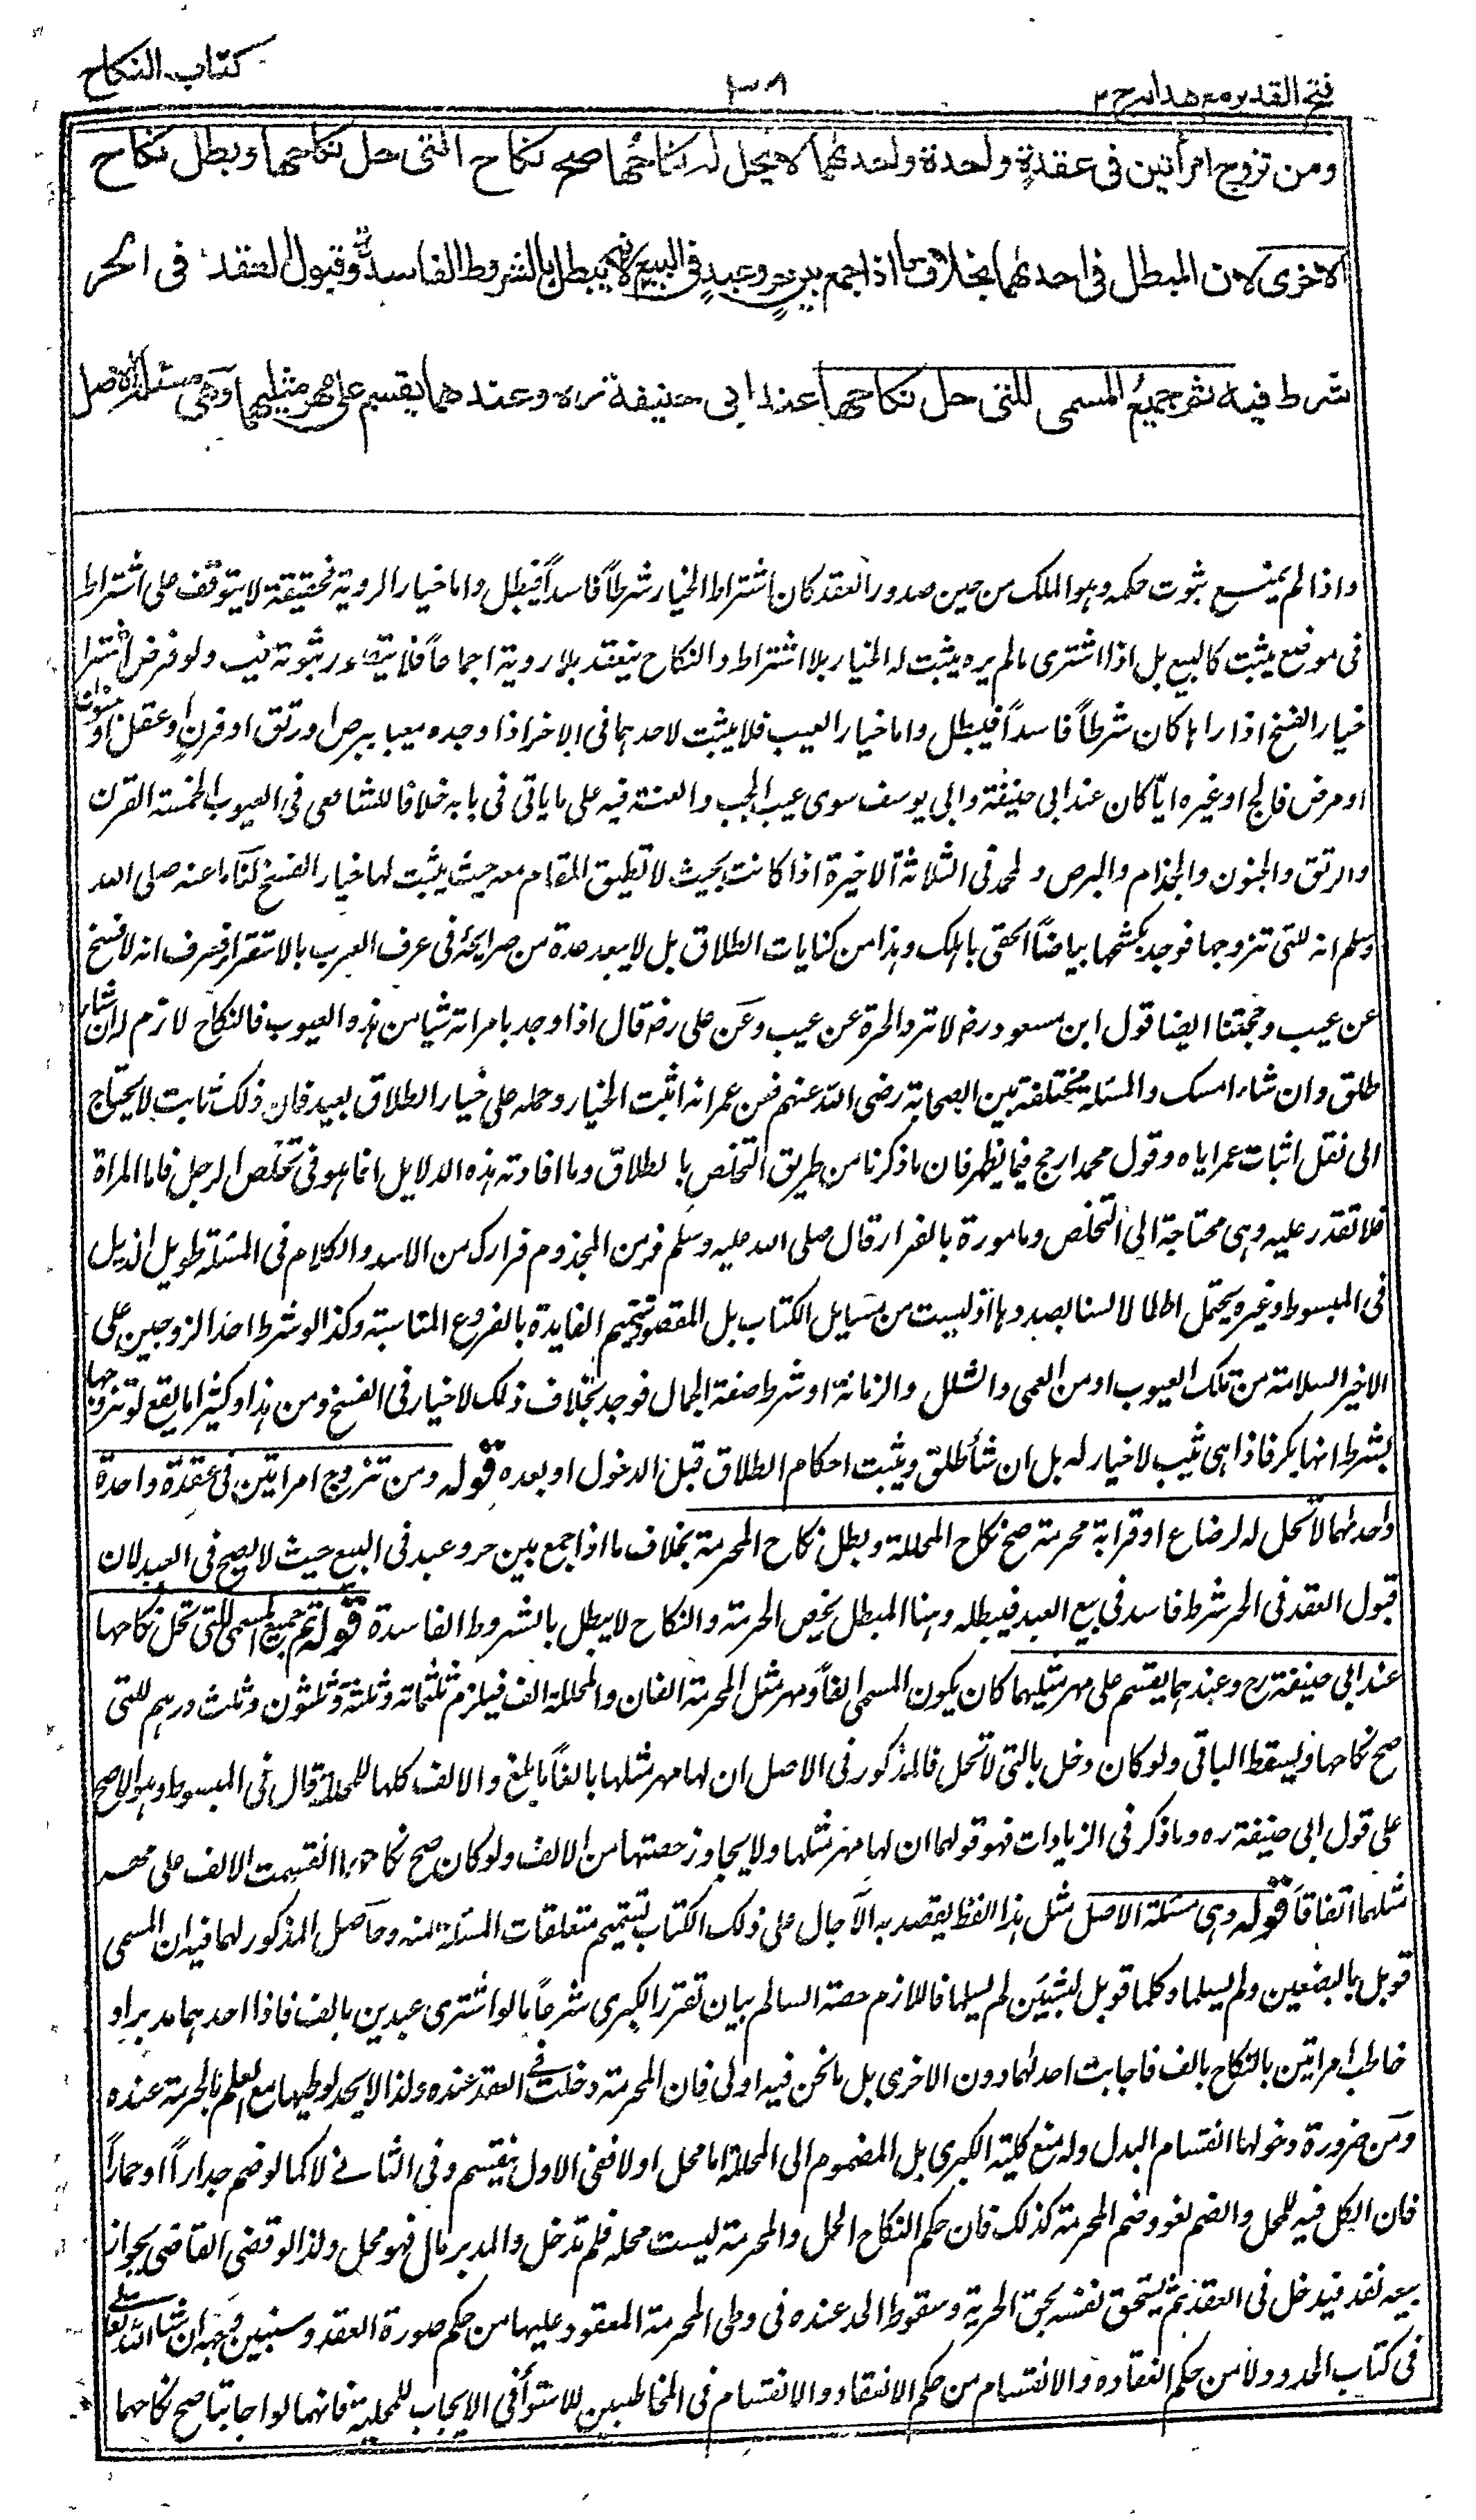 كتاب النكاح
٣٨
فتح القدير مع هدايه ج ٢
ومن تزوج امرأتين فى عقدةٍ واحدة واحدلهما لا يحل له نكاحُها صح نكاح التى حل نكاحها وبطل نكاح
الاخرى لان المبطل فى احدلهما بخلاف ما اذا جمع بين حرٍ وعبدٍ فى البيع لانه يبطل بالشروط الفاسدة وقبول العقد فى الحر
شرط فيه ثم جميعُ المسمى للتى حل نكاحها عند ابى حنيفة ره وعندهما يقسم على مهر مثليهما وهى مسئلة الاصل
واذا لم يمنع ثبوت حكمه وهو الملك من حين صدور العقد كان اشتراط الخيار شرطاً فاسداً فيبطل واما خيار الروية فحقيقة لا يتوقف على اشتراط
فى موضع يثبت كالبيع بل اذا اشترى مالم يره يثبت له الخيار بلا اشتراط والنكاح ينعقد بلا روية اجماعاً فلا يتصور ثبوته فيه ولو فرض اشتراط
خيار الفسخ اذا راها كان شرطاً فاسداً فيبطل واما خيار العيب فلا يثبت لاحدهما فى الاخر اذا وجده معيبا ببرص او رتق او قرن او عقل او جنون
او مرض فالج او غيره ايّا كان عند ابى حنيفة وابى يوسف سوى عيب الجب والعنة فيه على ما ياتى فى بابه خلافا للشافعى فى العيوب الخمسة القرن
والرتق والجنون والجذام والبرص ولمحمد فى الثلاثة الاخيرة اذا كانت بحيث لا تطيق المقام معه حيث يثبت لها خيار الفسخ لنا ما عنه صلى الله
وسلم انه للتى تزوجها فوجد بكشحها بياضاً الحقى باهلك وهذا من كنايات الطلاق بل لا يبعد عده من صرايحه فى عرف العرب بالاستقراء فعرف انه لا فسخ
عن عيب وحجتنا ايضا قول ابن مسعود رض لا ترد الحرة عن عيب وعن على رض قال اذا وجد بامراته شيا من هذه العيوب فالنكاح لازم له ان شاء
طلق وان شاء امسك والمسئلة مختلفة بين الصحابة رضى الله عنهم فعن عمر انه اثبت الخيار وحمله على خيار الطلاق بعيد فان ذلك ثابت لا يحتاج
الى نقل اثبات عمر اياه وقول محمد ارجح فيما يظهر فان ما ذكرنا من طريق التخلص بالطلاق وما افادته هذه الدلايل انما هو فى تخلص الرجل فاما المراة
فلا تقدر عليه وهى محتاجة الى التخلص ومامورة بالفرار قال صلى الله عليه وسلم فر من المجذوم فرارك من الاسد والكلام فى المسئلة طويل الذيل
فى المبسوط وغيره يحتمل اطالا لا لسنا بصددها اذ ليست من مسايل الكتاب بل المقصود تتميم الفايدة بالفروع المتناسبة وكذا لو شرط احد الزوجين على
الاخر السلامة من تلك العيوب او من العمى والشلل والزمانة او شرط صفة الجمال فوجد بخلاف ذلك لا خيار فى الفسخ ومن هذا وكثيرا ما يقع لو تزوجها
بشرط انها بكر فاذا هى ثيب لا خيار له بل ان شأ طلق ويثبت احكام الطلاق قبل الدخول او بعده قوله ومن تزوج امراتين فى عقدة واحدة
واحدلهما لا تحل له لرضاع او قرابة محرمة صح نكاح المحللة وبطل نكاح المحرمة بخلاف ما اذا جمع بين حر وعبد فى البيع حيث لا يصح فى العبد لان
قبول العقد فى الحر شرط فاسد فى بيع العبد فيبطله وهنا المبطل يخص المحرمة والنكاح لا يبطل بالشروط الفاسدة قوله ثم جميع المسمى للتى تحل نكاحها
عند ابى حنيفة رح وعندهما يقسم على مهر مثليهما كان يكون المسمى الفاً ومهر مثل المحرمة الفان والمحللة الف فيلزم ثلثمائة وثلثة وثلثون وثلث درهم للتى
صح نكاحها ويسقط الباقى ولو كان دخل بالتى لا تحل فالمذكور فى الاصل ان لها مهر مثلها بالغاً ما بلغ والالف كلها للمحللة قال فى المبسوط وهو الاصح
على قول ابى حنيفة ره وما ذكر فى الزيادات فهو قولهما ان لها مهر مثلها ولا يجاوز حصتها من الالف ولو كان صح نكاحهما انقسمت الالف على مهر
مثلهما اتفاقاً قوله وهى مسئلة الاصل مثل هذا اللفظ يقصد به الآجال على ذلك الكتاب لتتميم متعلقات المسئلة منه وحاصل المذكور لهما فيه ان المسمى
قوبل بالبضعين ولم يسلما وكلما قوبل بشيئين لم يسلما فاللازم حصة السالم بيان تقرر الكبرى شرعاً ما لو اشترى عبدين بالف فاذا احدهما مدبر او
خاطب امراتين بالنكاح بالف فاجابت احدلهما دون الاخرى بل ما نحن فيه اولى فان المحرمة دخلت فى العقد عنده ولذا لا يحد لوطيها مع العلم بالحرمة عنده
ومن ضرورة دخولها انقسام البدل وله منع كلية الكبرى بل المضموم الى المحللة اما محل او لا ففى الاول ينقسم وفى الثانى لا كما لو ضم جداراً او حماراً
فان الكل فيه للمحل والضم لغو وضم المحرمة كذلك فان حكم النكاح الحل والمحرمة ليست محله فلم تدخل والمدبر مال فهو محل ولذا لو قضى القاضى بجواز
بيعه نفذ فيدخل فى العقد ثم يستحق نفسه بحق الحرية وسقوط الحد عنده فى وطى المحرمة المعقود عليها من حكم صورة العقد وسنبين وجهه ان شاء الله تعالى
فى كتاب الحدود لا من حكم انعقاده والانقسام من حكم الانعقاد والانقسام فى المخاطبين للاستوأ فى الايجاب للمحلية فانهما لو اجابتا صح نكاحهما